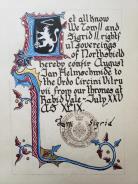 Let all know
We Tom II and
Sigrid II, rightful
sovereings
of Northshield
hereby confir August
Jan Helmschmide to
the Ordo Circini Vitru
vii from our thrones at
Rabid Vale - July XXV
AS XLIX.
Tom Sigrid